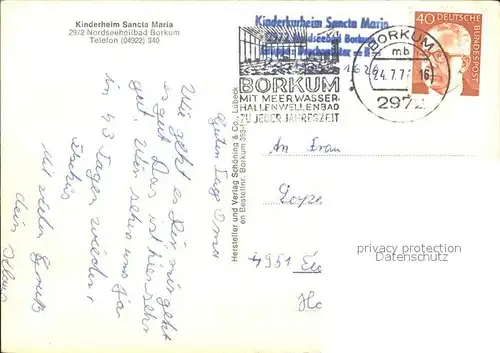 Kinderheim Sancta Maria
29/2 Nordseeheilbad Borkum
Telefon (04922) 340
Kinderkurheim Sancta Maria
29/2 Nordseebad Borkum
Gruppe:
BORKUM
MIT MEERWASSER-
HALLENWELLENBAD
ZU JEDER JAHRESZEIT
BORKUM
mb
24.7.7
16
2972
40 DEUTSCHE
BUNDESPOST
Hersteller und Verlag Schöning & Co., Lübeck
Bestellnr. Borkum
Guten Tag Oma
Wie geht es Dir mir geht
es gut. Das ist hier sehr
gut. Wir sehen uns ja
in 43 Tagen wieder.
Tschüs
Mit vielen Gruß
dein
An Frau
4951
privacy protection
Datenschutz